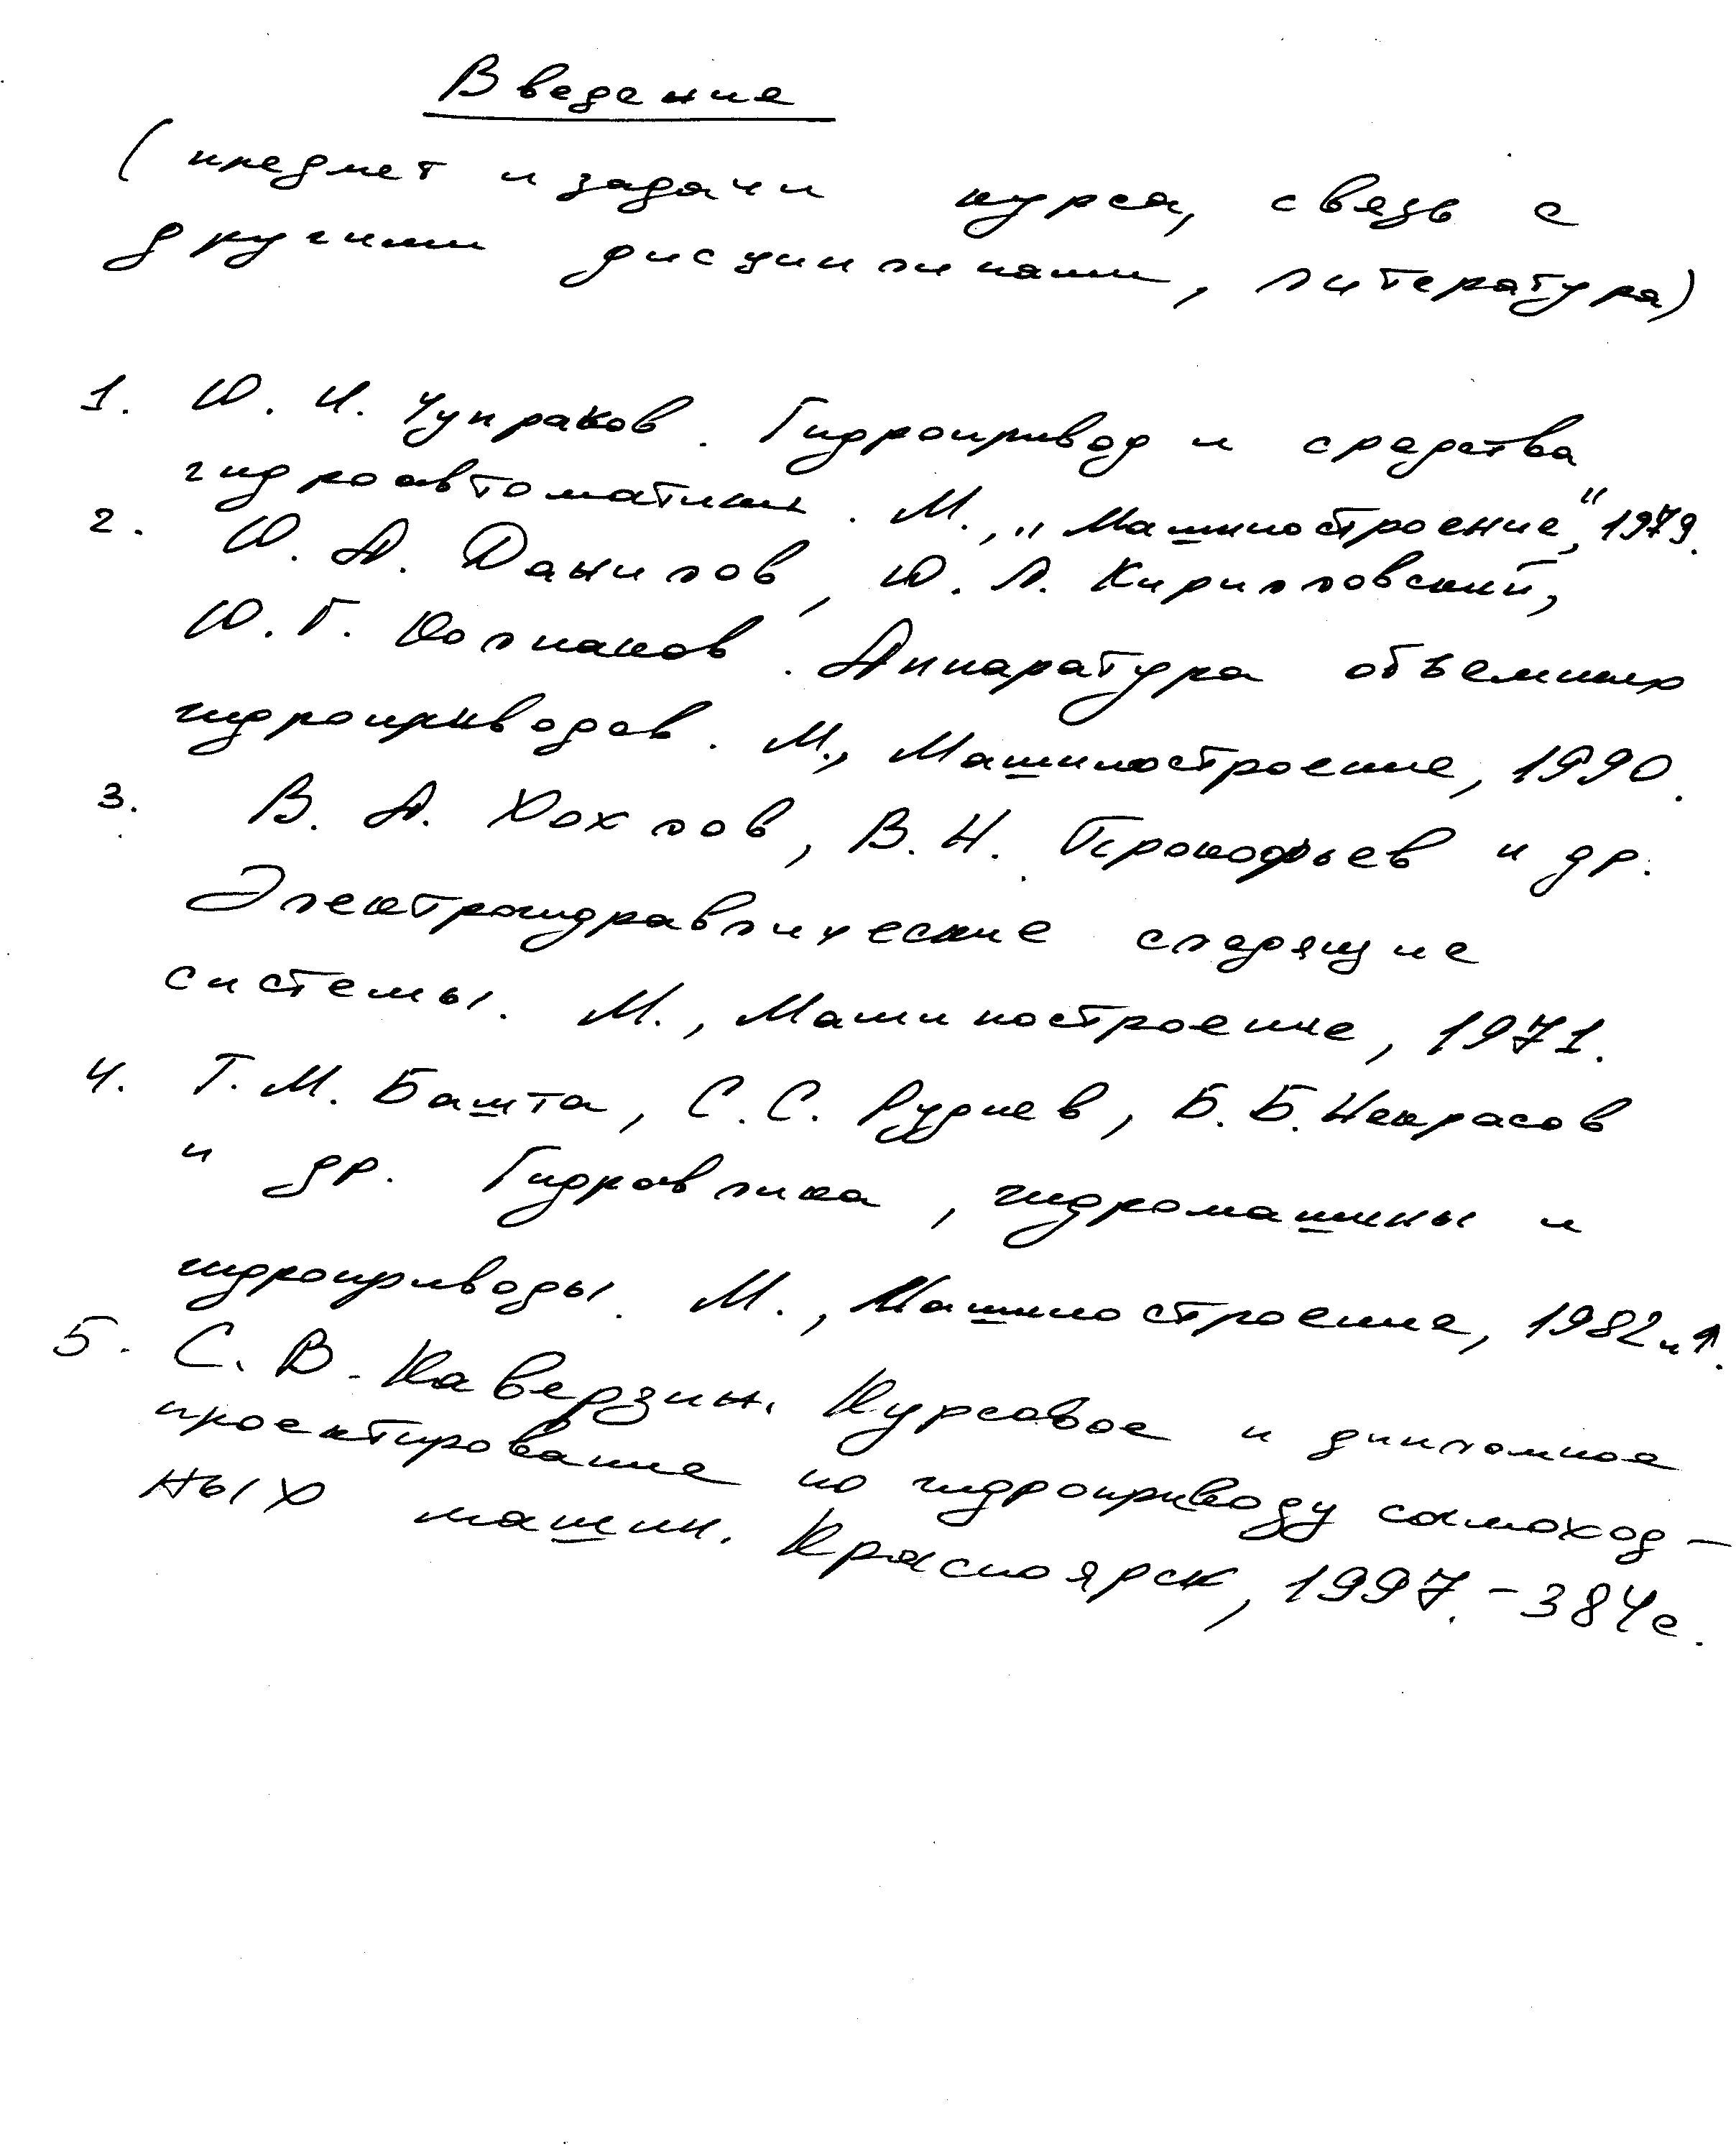 Введение
(предмет и задачи курса, связь с
другими дисциплинами, литература)
1. Ю. И. Чупраков. Гидропривод и средства
гидроавтоматики. М., „Машиностроение", 1979.
2. Ю. А. Данилов, Ю. Л. Кирилловский,
Ю. Г. Колпаков. Аппаратура объемных
гидроприводов. М., Машиностроение, 1990.
3. В. А. Хохлов, В. Н. Прокофьев и др.
Электрогидравлические следящие
системы. М., Машиностроение, 1971.
4. Т. М. Башта, С. С. Руднев, Б. Б. Некрасов
и др. Гидравлика, гидромашины и
гидроприводы. М., Машиностроение, 1982 и ↑.
5. С. В. Каверзин. Курсовое и дипломное
проектирование по гидроприводу самоход-
ных машин. Красноярск, 1997. - 384 с.